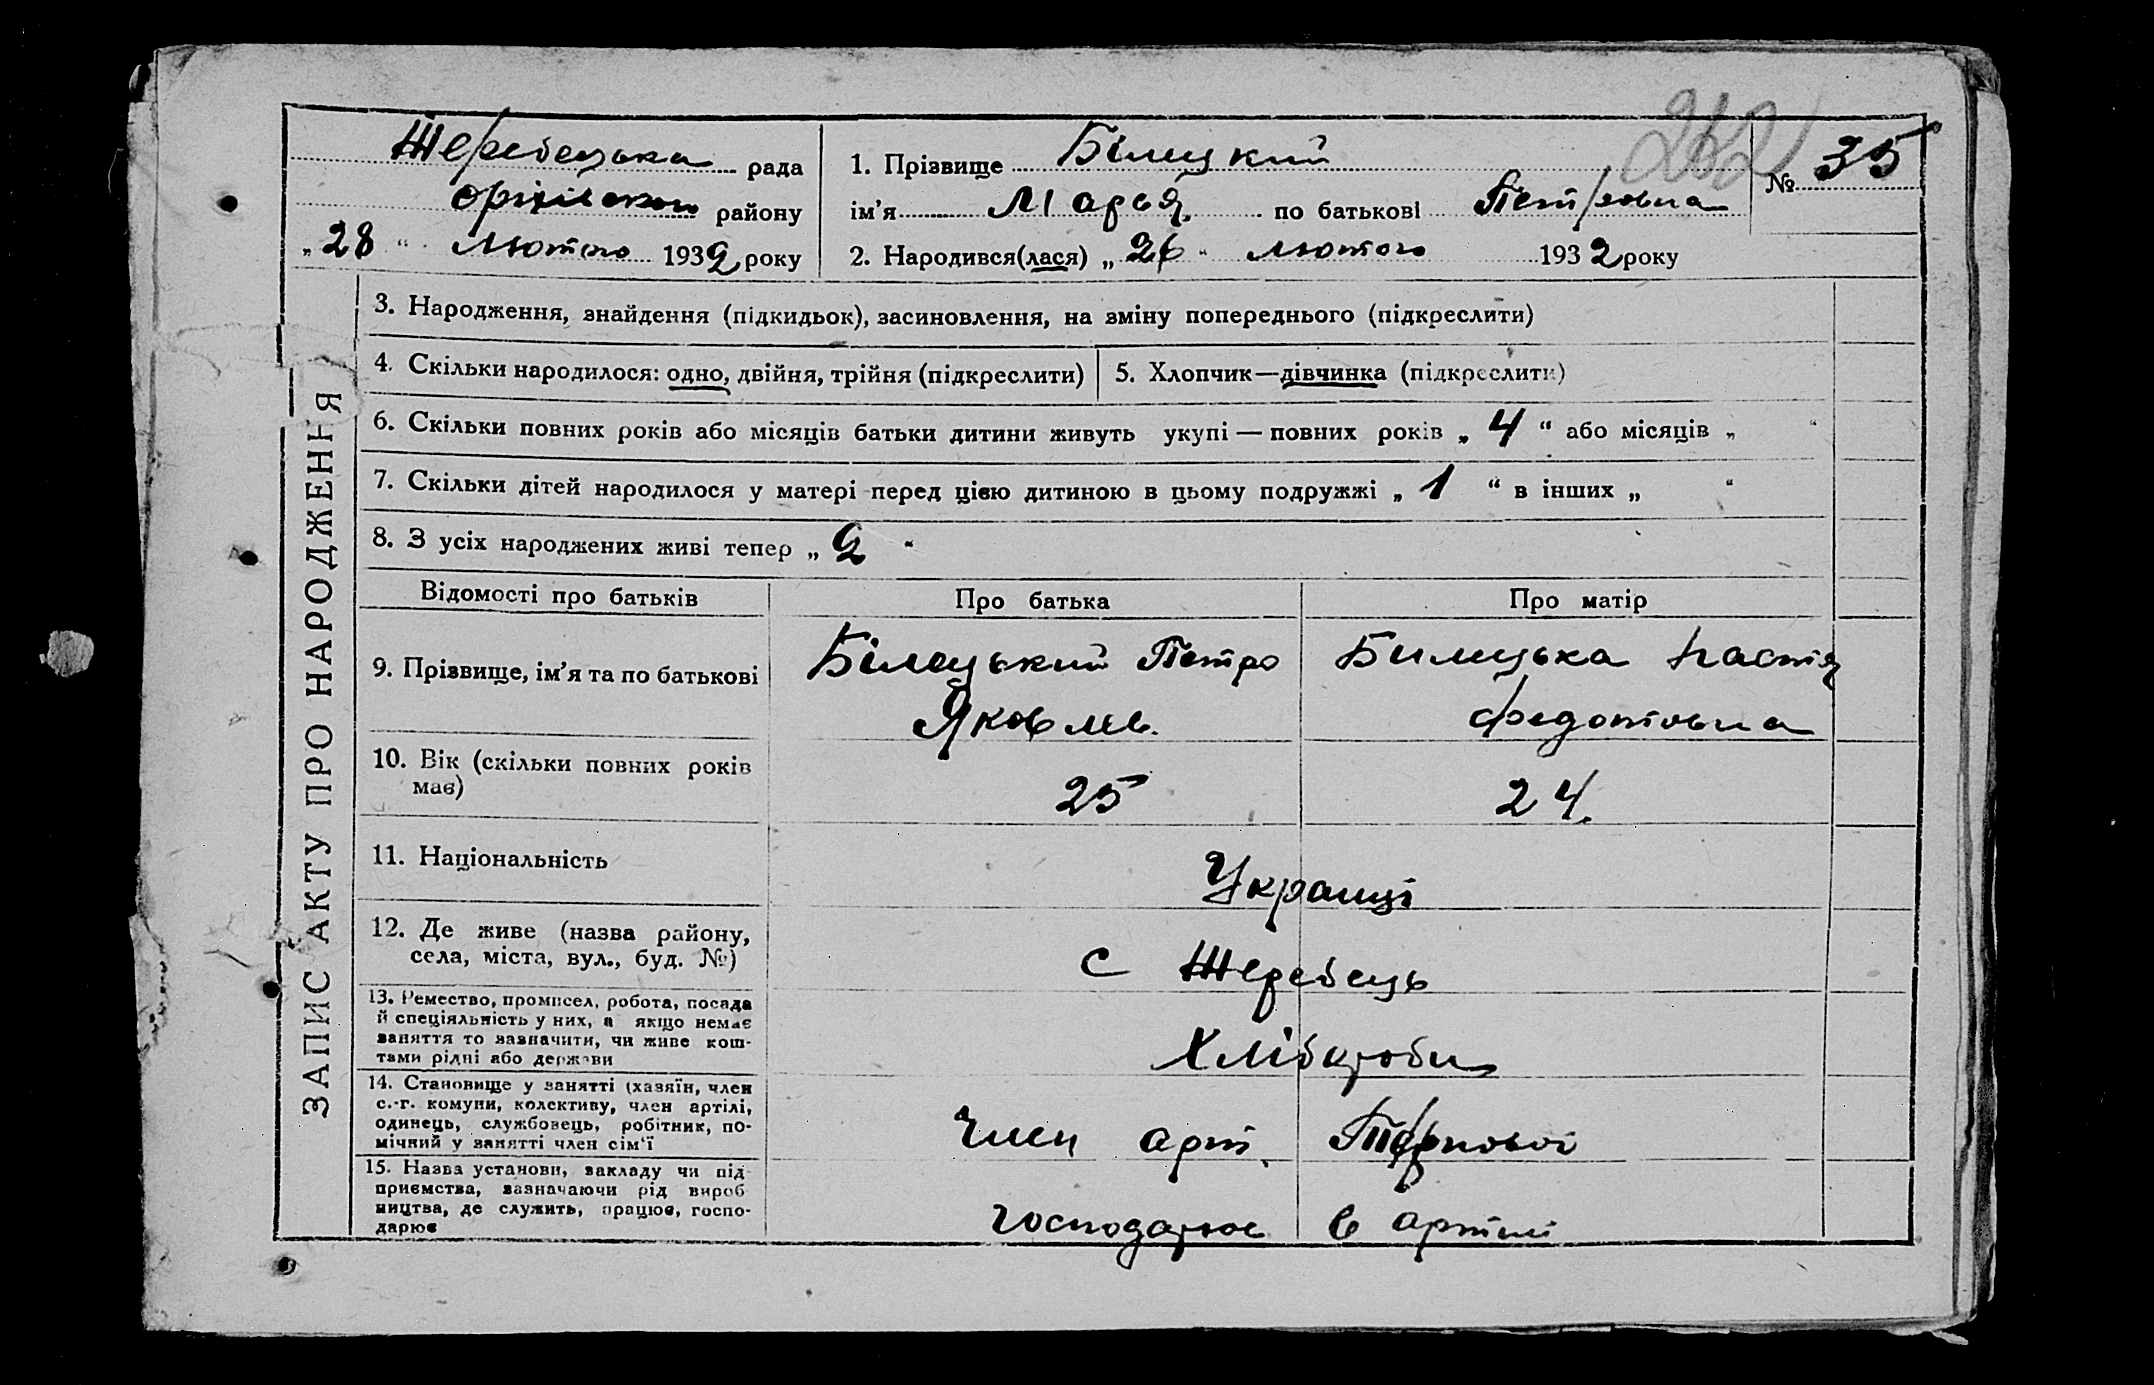 Жеребецька рада
Оріхівського району
„28“ лютого 1932 року
1. Прізвище Білецкий
ім’я Марья по батькові Петровна
2. Народився(лася) „26“ лютого 1932 року
№ 35
ЗАПИС АКТУ ПРО НАРОДЖЕННЯ
3. Народження, знайдення (підкидьок), засиновлення, на зміну попереднього (підкреслити)
4. Скільки народилося: одно, двійня, трійня (підкреслити)
5. Хлопчик—дівчинка (підкреслити)
6. Скільки повних років або місяців батьки дитини живуть укупі — повних років „4“ або місяців „ “
7. Скільки дітей народилося у матері перед цією дитиною в цьому подружжі „1“ в інших „ “
8. З усіх народжених живі тепер „2“
Відомості про батьків Про батька Про матір
9. Прізвище, ім’я та по батькові
Білецький Петро
Яковлев.
Билецька Настя
Федотовна
10. Вік (скільки повних років
має)
25
24.
11. Національність
Украинці
12. Де живе (назва району,
села, міста, вул., буд. №)
с Жеребець
13. Ремество, промисел, робота, посада
й спеціяльність у них, а якщо немає
заняття то зазначити, чи живе кош-
тами рідні або держави
Хліборобы
14. Становище у занятті (хазяїн, член
с.-г. комуни, колективу, член артілі,
одинець, службовець, робітник, по-
мічний у занятті член сім‘ї
Член арт.
15. Назва установи, закладу чи під
приємства, зазначаючи рід вироб
ництва, де служить, працює, госпо-
дарює
господарює в артілі